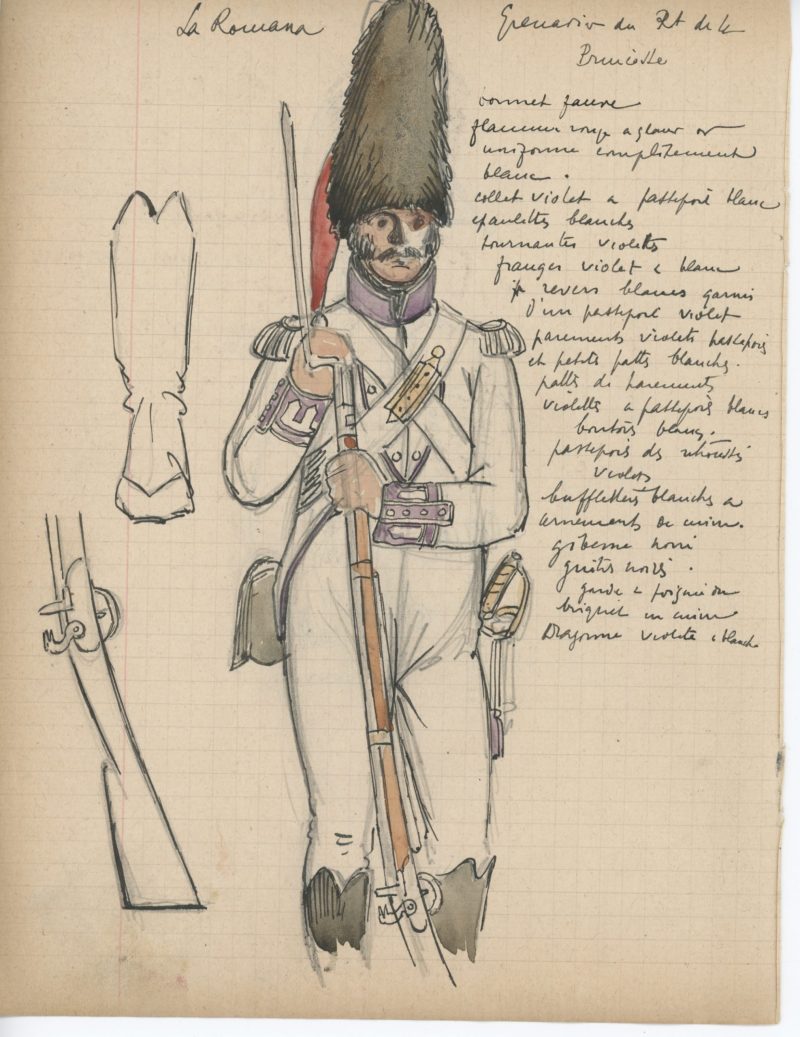 La Romana
Grenadier du Rt de la
Princesse
bonnet fauve
flamme rouge a gland or
uniforme complètement
blanc.
collet violet a passepoil blanc
epaulettes blanches
tournantes violettes
franges violet & blanc
revers blancs garnis
d'un passepoil violet
parements violets passepoil
et petites pattes blanches.
pattes de parements
violettes a passepoils blancs
boutons blancs.
passepoils des retroussis
violets
buffleteries blanches a
ornements de cuivre.
giberne noire
guêtres noires.
garde & poignée du
briquet en cuivre
Dragonne violette & blanche